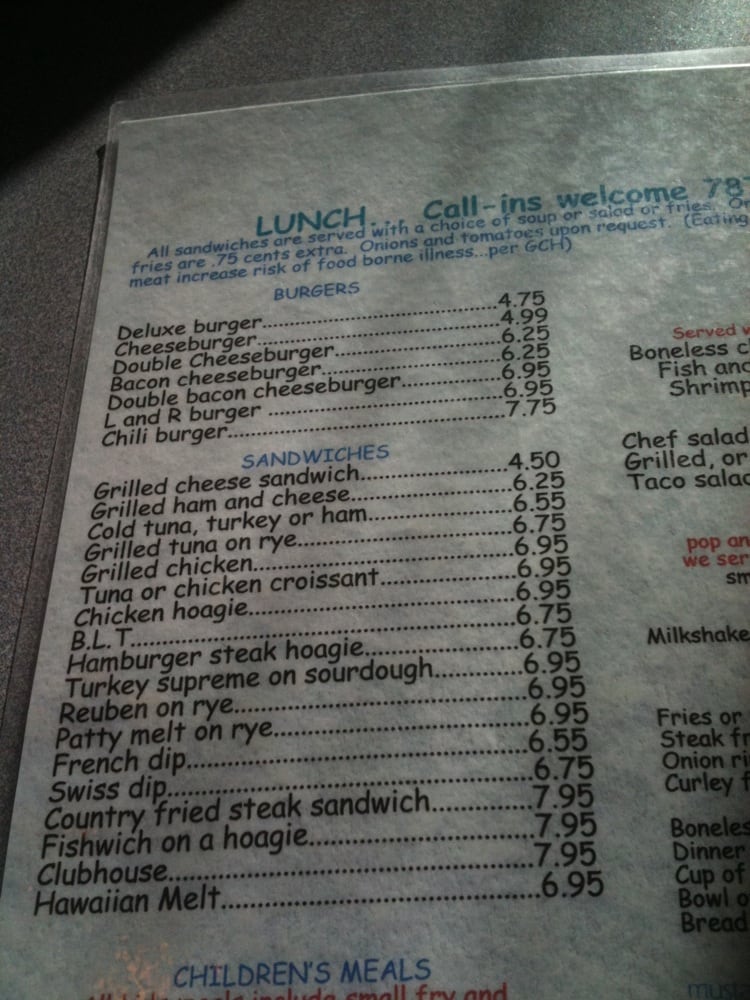 LUNCH... Call-ins welcome 787
All sandwiches are served with a choice of soup or salad or fries. On
fries are .75 cents extra. Onions and tomatoes upon request. (Eating
meat increase risk of food borne illness...per GCH)
BURGERS
Deluxe burger..........4.75
Cheeseburger..........4.99
Double Cheeseburger..........6.25
Bacon cheeseburger..........6.25
Double bacon cheeseburger..........6.95
L and R burger ..........6.95
Chili burger..........7.75
SANDWICHES
Grilled cheese sandwich..........4.50
Grilled ham and cheese..........6.25
Cold tuna, turkey or ham..........6.55
Grilled tuna on rye..........6.75
Grilled chicken..........6.95
Tuna or chicken croissant..........6.95
Chicken hoagie..........6.95
B.L.T..........6.75
Hamburger steak hoagie..........6.75
Turkey supreme on sourdough..........6.95
Reuben on rye..........6.95
Patty melt on rye..........6.95
French dip..........6.55
Swiss dip..........6.75
Country fried steak sandwich..........7.95
Fishwich on a hoagie..........7.95
Clubhouse..........7.95
Hawaiian Melt..........6.95
CHILDREN'S MEALS
All kids meals include small fry and
Served w
Boneless c
Fish and
Shrimp
Chef salad
Grilled, or
Taco salad
pop an
we ser
sm
Milkshake
Fries or
Steak fr
Onion ri
Curley f
Boneles
Dinner
Cup of
Bowl o
Bread
musta